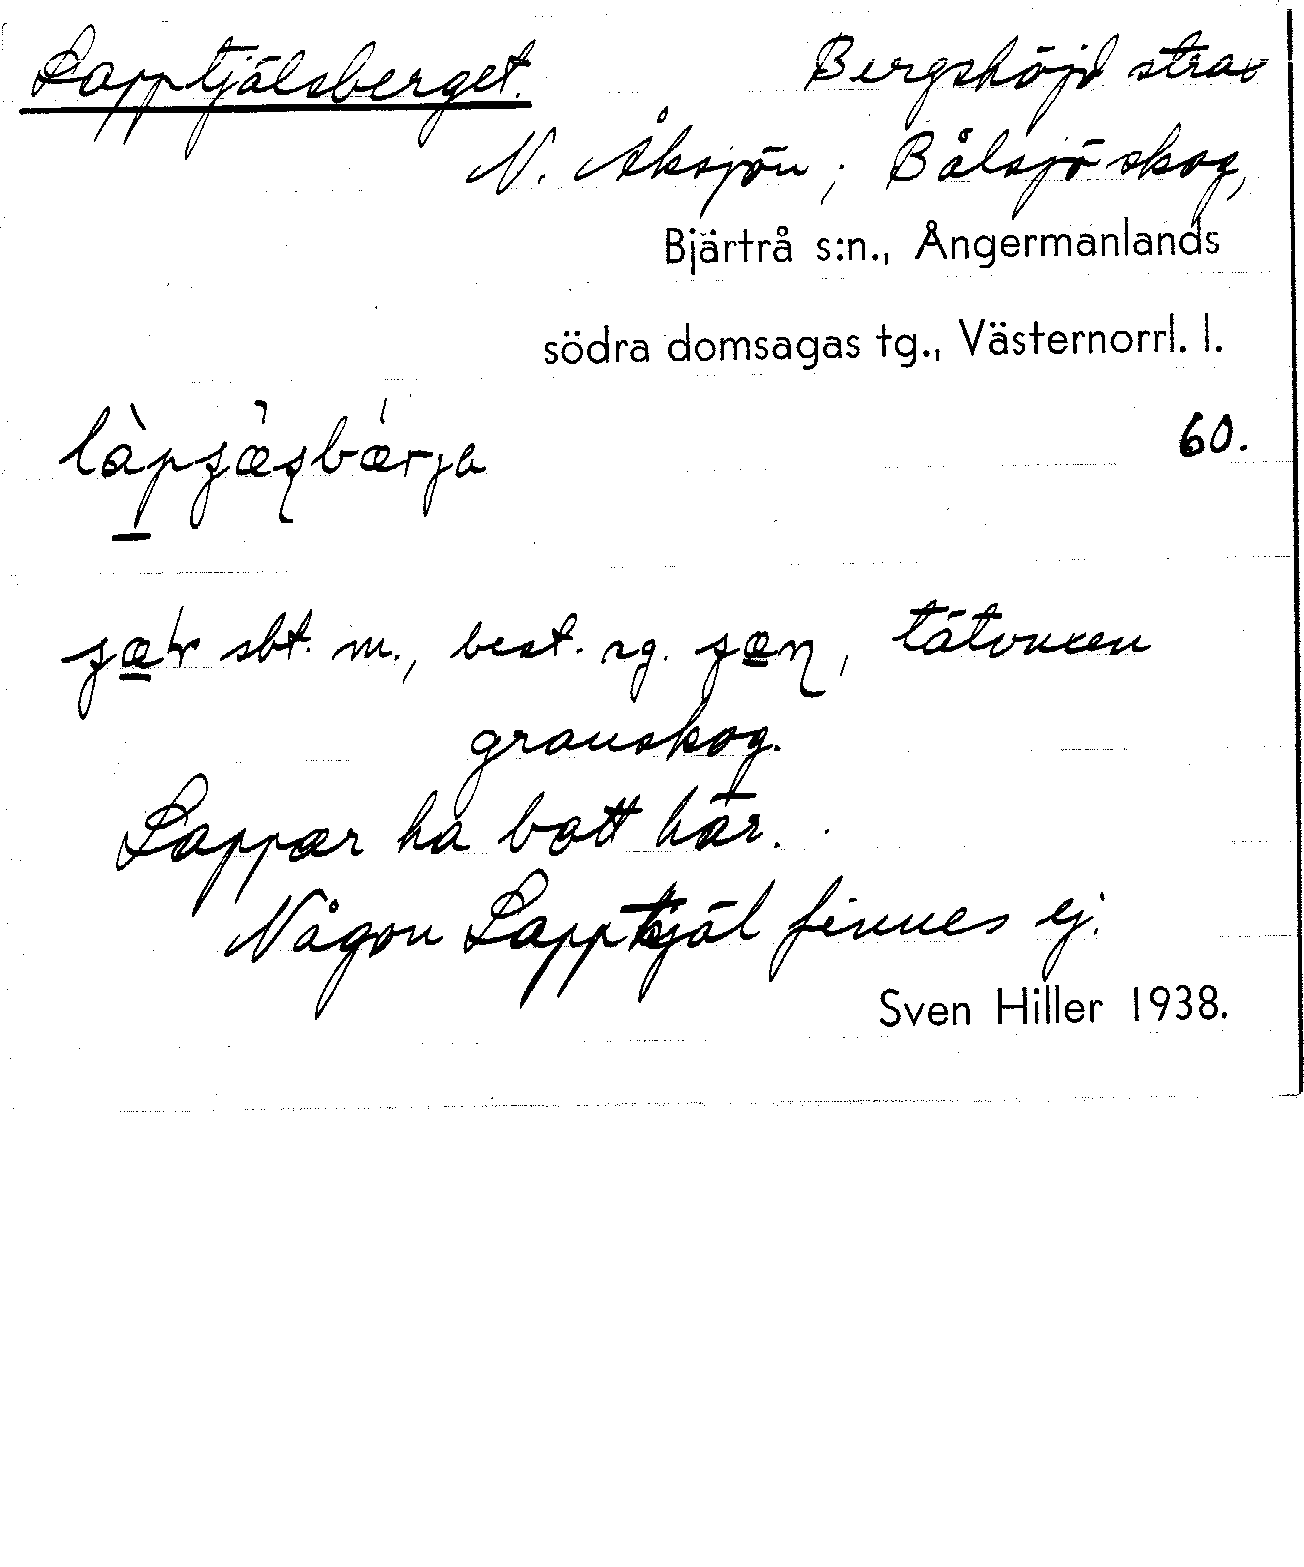 Lapptjälsberget. Bergshöjd strax
N. Åksjön; Bålsjö skog,
Bjärtrå s:n., Ångermanlands
södra domsagas tg., Västernorrl. l.
60.
sbt. m., best. sg. tätvuxen
granskog.
Lappar ha bott här.
Någon Lapptjäl finnes ej.
Sven Hiller 1938.